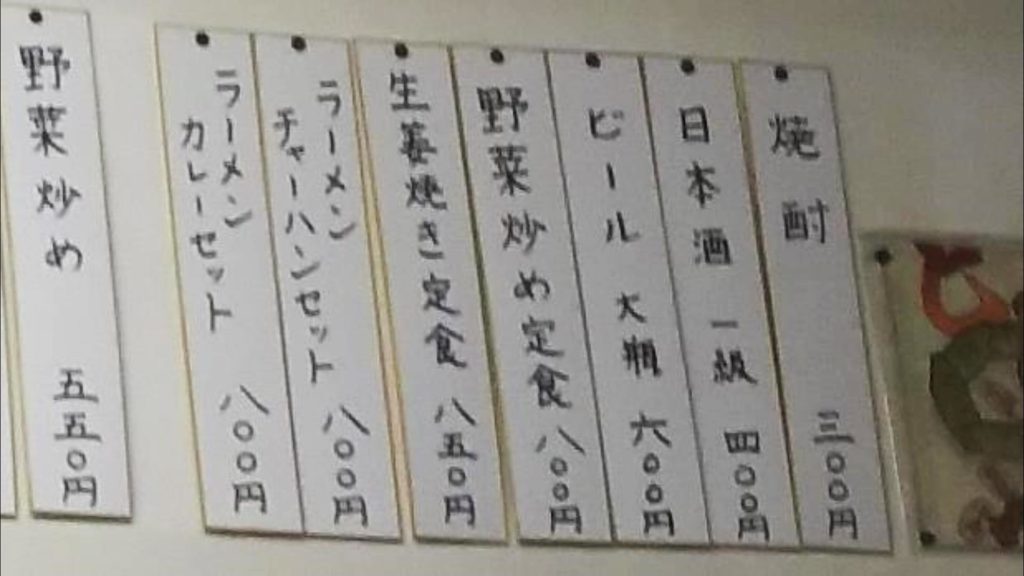 焼酎 三〇〇円
日本酒 一級 四〇〇円
ビール 大瓶 六〇〇円
野菜炒め定食 八〇〇円
生姜焼き定食 八五〇円
ラーメン
チャーハンセット 八〇〇円
ラーメン
カレーセット 八〇〇円
野菜炒め 五五〇円